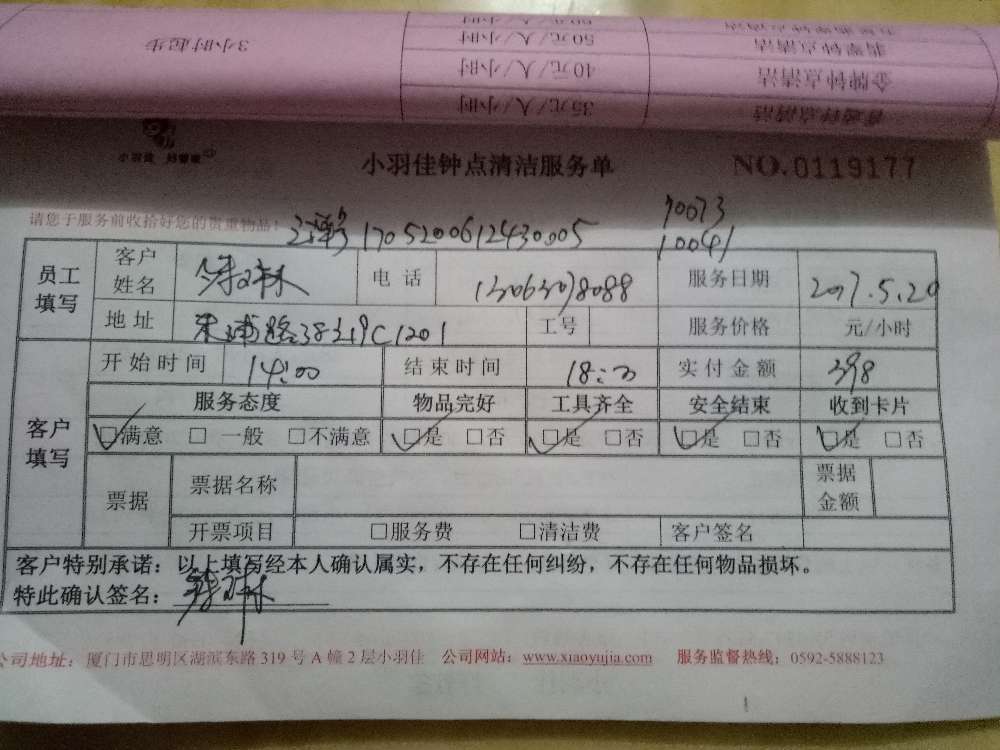 60元/人/小时
50元/人/小时 翡翠钟点清洁
3小时起步
40元/人/小时 金牌钟点清洁
35元/人/小时 普通钟点清洁
小羽佳
小羽佳钟点清洁服务单 NO.0119177
请您于服务前收拾好您的贵重物品! 1705200612430005 70073
10041
员工填写 客户姓名 电话 13063078088 服务日期 2017.5.20
地址 C1201 工号 服务价格 元/小时
客户填写 开始时间 14:00 结束时间 18:00 实付金额 398
服务态度 物品完好 工具齐全 安全结束 收到卡片
□满意 □一般 □不满意 □是 □否 □是 □否 □是 □否 □是 □否
票据 票据名称 票据金额
开票项目 □服务费 □清洁费 客户签名
客户特别承诺：以上填写经本人确认属实，不存在任何纠纷，不存在任何物品损坏。
特此确认签名：
公司地址：厦门市思明区湖滨东路 319 号 A 幢 2 层小羽佳 公司网站：www.xiaoyujia.com 服务监督热线：0592-5888123